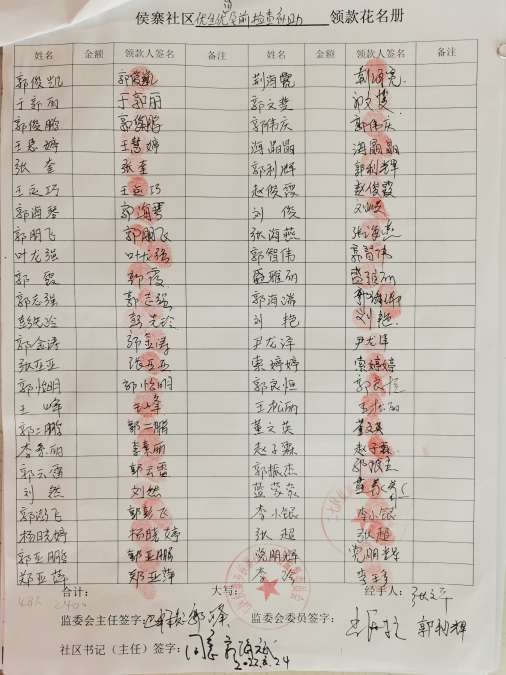 侯寨社区优生优育前检查补助 领款花名册
姓名 金额 领款人签名 备注 姓名 金额 领款人签名 备注
郭俊凯 郭俊凯 荆海霞 荆海霞
于新丽 于新丽 郭文燕 郭文燕
郭俊鹏 郭俊鹏 郭伟庆 郭伟庆
王慧婷 王慧婷 海晶晶 海晶晶
张奎 张奎 郭利辉 郭利辉
王运巧 王运巧 赵俊霞 赵俊霞
郭海琴 郭海琴 刘俊 刘俊
郭朋飞 郭朋飞 张海燕 张海燕
叶龙强 叶龙强 郭智伟 郭智伟
郭霞 郭霞 盛雅丽 盛雅丽
郭志强 郭志强 郭海瑞
彭先玲 彭先玲 刘艳 刘艳
郭金涛 郭金涛 尹龙洋 尹龙洋
张亚亚 张亚亚 索婷婷 索婷婷
郭怡明 郭怡明 郭良恒 郭良恒
王峰 王峰 王松丽 王松丽
郭二鹏 郭二鹏 董文英 董文英
李素丽 李素丽 赵子霖 赵子霖
郭云雷 郭云雷 郭振杰 郭振杰
刘然 刘然 蓝芬芬
郭澎飞 郭彭飞 李小银 李小银
杨晓婷 杨晓婷 张超 张超
郭亚鹏 郭亚鹏 党朋辉 党朋辉
郑亚萍 郑亚萍 李玲
合计： 大写： 经手人：
监委会主任签字： 监委会委员签字： 郭利辉
社区书记（主任）签字： 同意
2022.8.24